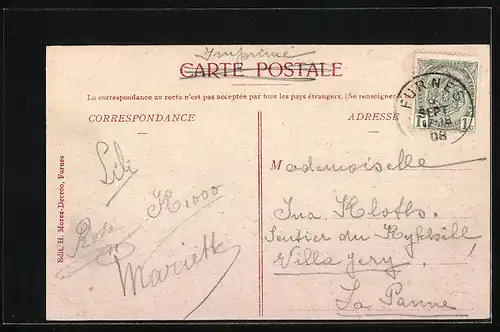 Imprimé
CARTE POSTALE
La correspondance au recto n'est pas acceptée par tous les pays étrangers. (Se renseigner
CORRESPONDANCE
ADRESSE
FURNES
SEPT
08
1c
Edit. H. Morez-Decroo, Furnes
Lili
K 1000
Rosa
en
Mariette
Mademoiselle
Ina Kloths
Sentier du Kykhill
Villa Jery
La Panne